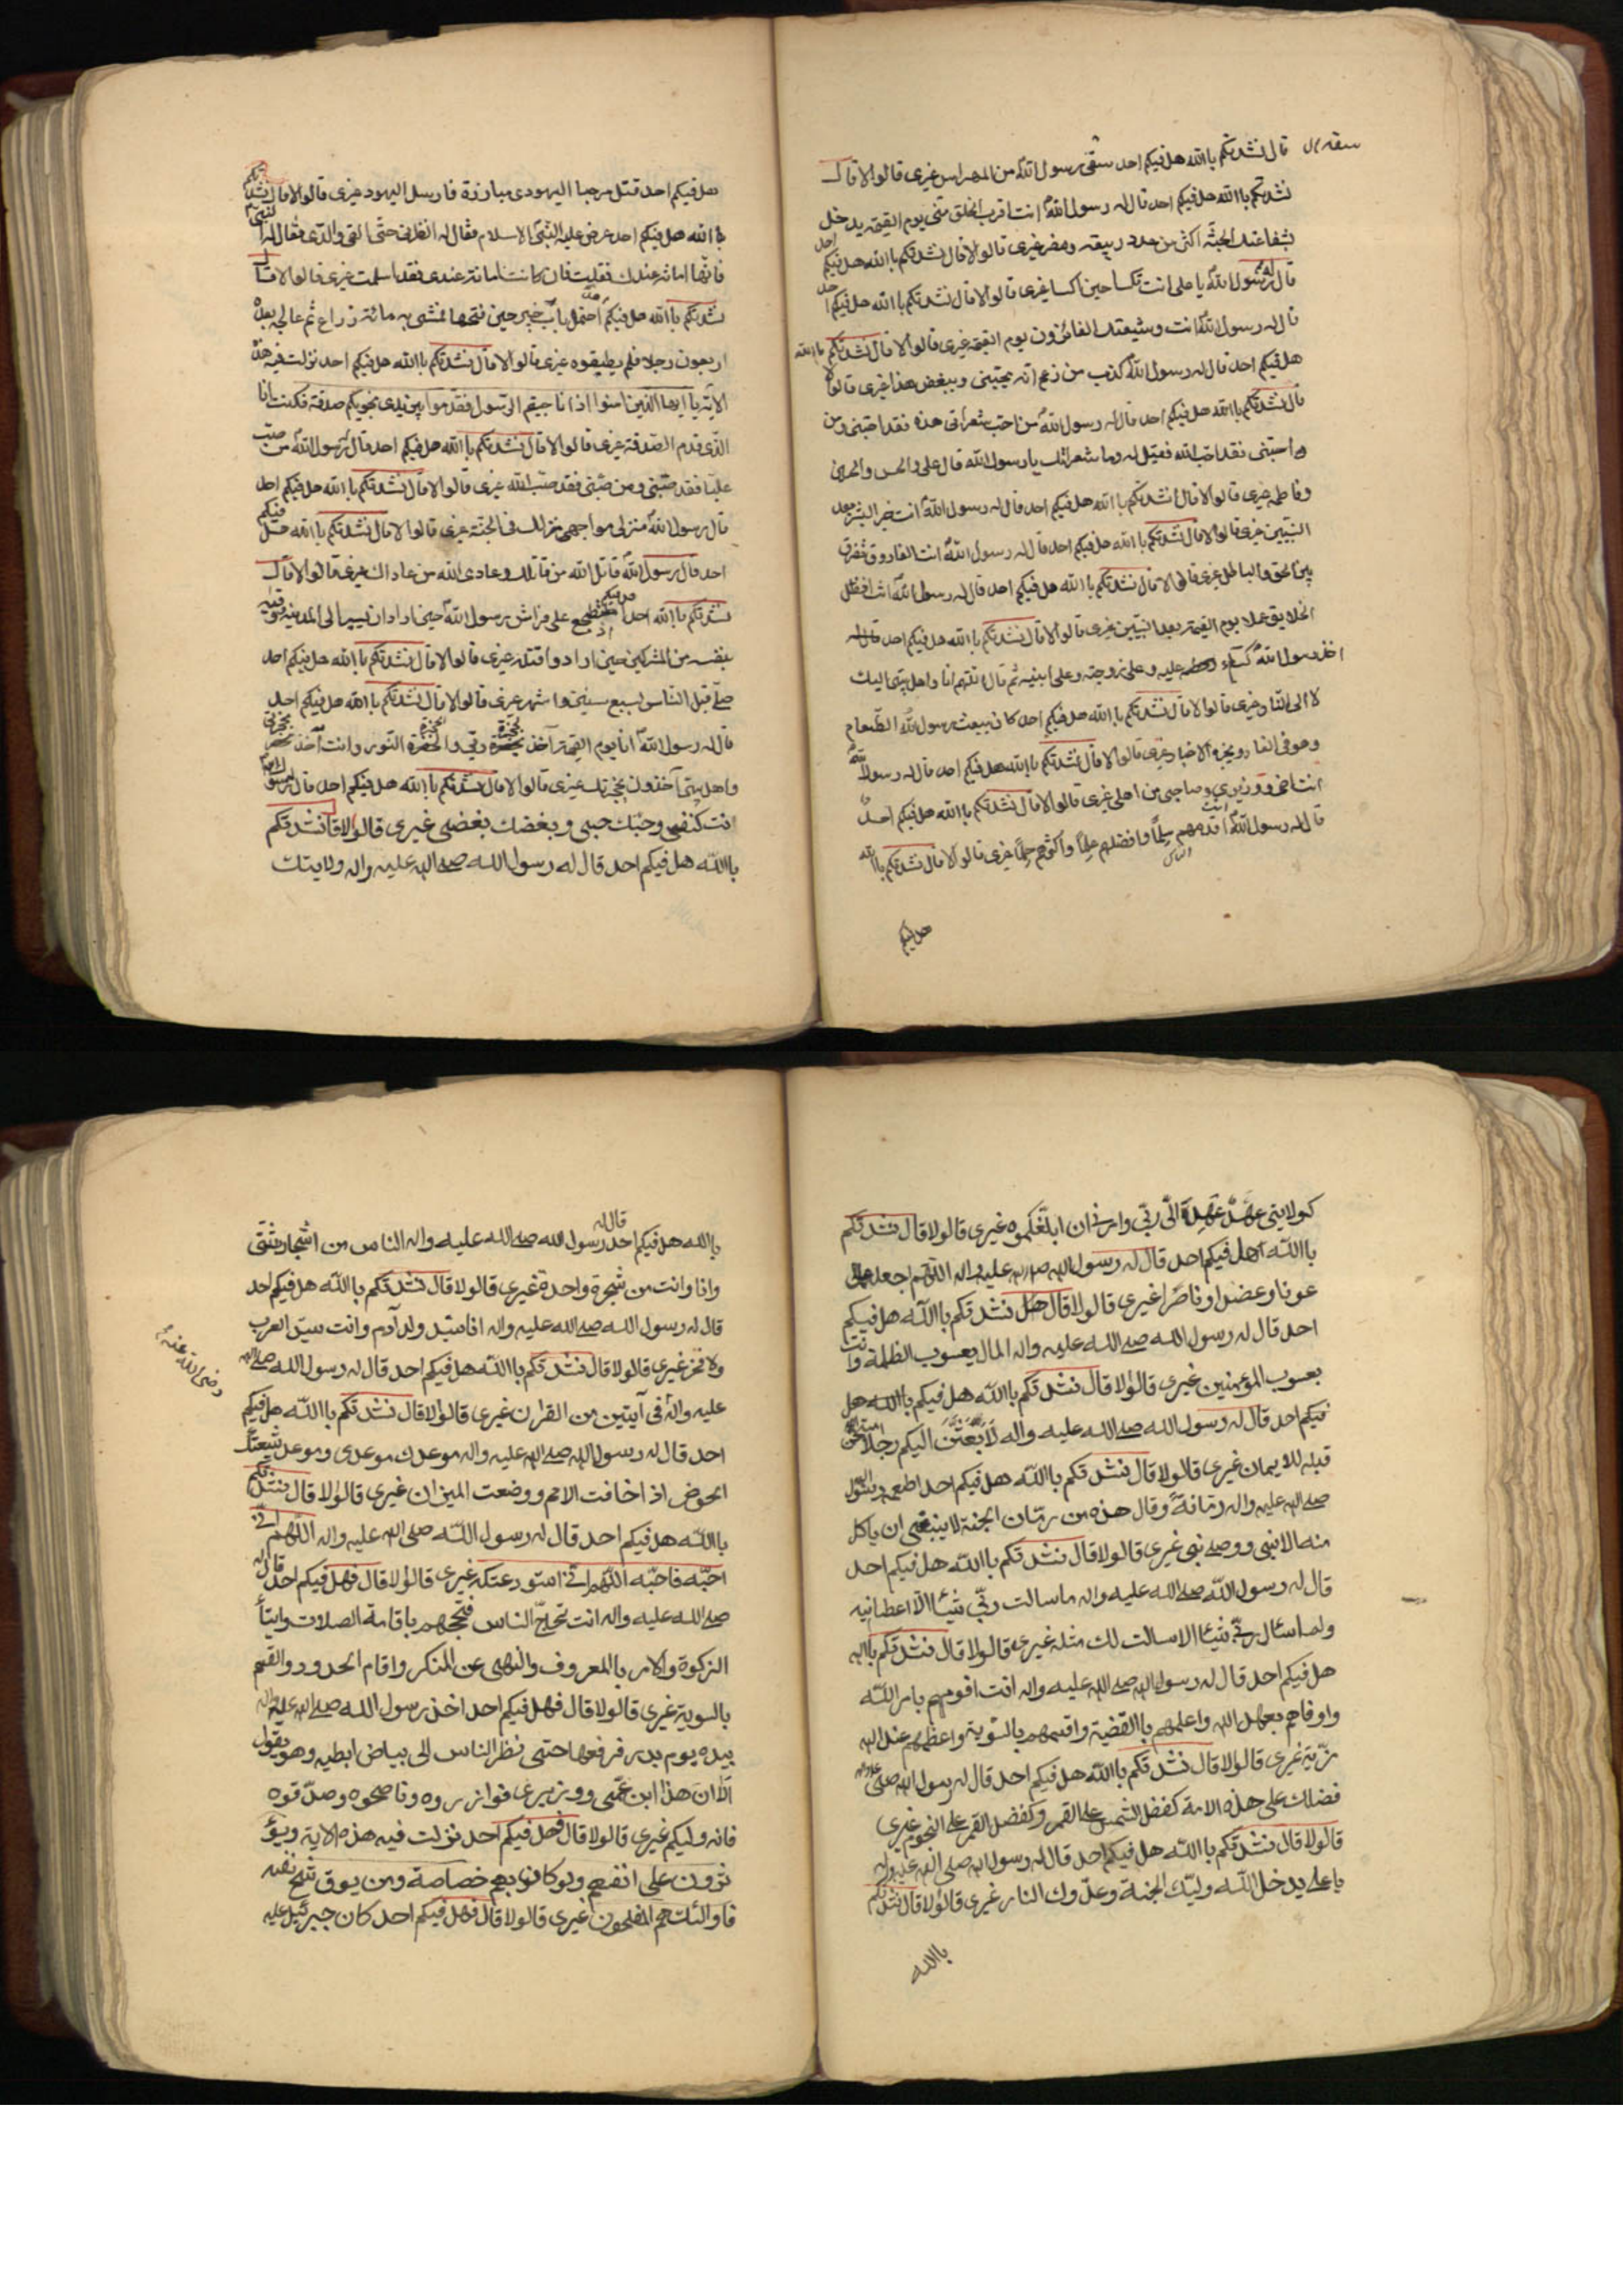 قال نشدتكم باالله هل فيكم احد سقى رسول الله من المهراس غيرى قالوا لا قال
نشدتكم باالله هل فيكم احد قال له رسول الله انت اقرب الخلق منى يوم القيمة يدخل
بشفاعتك الجنة اكثر من عدد ربيعة ومضر غيرى قالوا لا قال نشدتكم باالله هل فيكم احد
قال له رسول الله يا على انت تكسا حين اكسا غيرى قالوا لا قال نشدتكم باالله هل فيكم احد
قال له رسول الله انت وشيعتك الفائزون يوم القيمة غيرى قالوا لا قال نشدتكم باالله
هل فيكم احد قال له رسول الله كذب من زعم انه يحبنى ويبغض هذا غيرى قالوا لا
قال نشدتكم باالله هل فيكم احد قال له رسول الله من احب شعراتى هذه فقد احبنى ومن
احبنى فقد احب الله فقيل له وما شعراتك يا رسول الله قال على والحسن والحسين
وفاطمة غيرى قالوا لا قال نشدتكم باالله هل فيكم احد قال له رسول الله انت خير البشر بعد
النبيين غيرى قالوا لا قال نشدتكم باالله هل فيكم احد قال له رسول الله انت الفاروق تفرق
بين الحق والباطل غيرى قالوا لا قال نشدتكم باالله هل فيكم احد قال له رسول الله انت افضل
الخلايق عملا يوم القيمة بعد النبيين غيرى قالوا لا قال نشدتكم باالله هل فيكم احد
اخذ رسول الله كساء عليه وعلى زوجته وعلى ابنيه ثم قال اللهم انا واهل بيتى اليك
لا الى النار غيرى قالوا لا قال نشدتكم باالله هل فيكم احد كان يبعث رسول الله الطعام
وهو فى الغار ويخبره الاخبار غيرى قالوا لا قال نشدتكم باالله هل فيكم احد قال له رسول الله
انت اخى ووزيرى وصاحبى من اهلى غيرى قالوا لا قال نشدتكم باالله هل فيكم احد
قال له رسول الله انت اقدمهم سلما وافضلهم علما واكثرهم حلما غيرى قالوا لا قال نشدتكم باالله
هل فيكم
هل فيكم احد قتل مرحبا اليهودى مبارزة فارسل اليهود غيرى قالوا لا قال نشدتكم
باالله هل فيكم احد عرض عليه النبى الاسلام فقال له انظرنى حتى القى والدى فقال له النبى
فانها امانة عندك فقلت فان كانت امانة عندى فقد اسلمت غيرى قالوا لا قال
نشدتكم باالله هل فيكم احد احتمل باب خيبر حين فتحها فمشى به مائة ذراع ثم عالجه بعده
اربعون رجلا فلم يطيقوه غيرى قالوا لا قال نشدتكم باالله هل فيكم احد نزلت فيه هذه
الاية يا ايها الذين امنوا اذا ناجيتم الرسول فقدموا بين يدى نجويكم صدقة فكنت انا
الذى قدم الصدقة غيرى قالوا لا قال نشدتكم باالله هل فيكم احد قال له رسول الله من سب
عليا فقد سبنى ومن سبنى فقد سب الله غيرى قالوا لا قال نشدتكم باالله هل فيكم احد
قال رسول الله منزلى مواجهى منزلك فى الجنة غيرى قالوا لا قال نشدتكم باالله هل فيكم
احد قال رسول الله قاتل الله من قاتلك وعادى الله من عاداك غيرى قالوا لا قال
نشدتكم باالله هل فيكم احد اضطجع على فراش رسول الله حين اراد ان يسير الى المدينة ووقيه
بنفسه من المشركين حين ارادوا قتله غيرى قالوا لا قال نشدتكم باالله هل فيكم احد
صلى قبل الناس لسبع سنين واشهر غيرى قالوا لا قال نشدتكم باالله هل فيكم احد
قال له رسول الله انا يوم القيمة آخذ بحجزة ربى والحجزة النور وانت آخذ بحجزتى
واهل بيتى آخذون بحجزتك غيرى قالوا لا قال نشدتكم باالله هل فيكم احد قال له رسول الله
انت كنفسى وحبك حبى وبغضك بغضى غيرى قالوا لا قال نشدتكم
باالله هل فيكم احد قال له رسول الله صلى الله عليه واله ولايتك
كولايتى عهد عهده الى ربى وامرنى ان ابلغكموه غيرى قالوا لا قال نشدتكم
باالله هل فيكم احد قال له رسول الله صلى الله عليه واله اللهم اجعله لى
عونا وعضدا وناصرا غيرى قالوا لا قال نشدتكم باالله هل فيكم
احد قال له رسول الله صلى الله عليه واله المال يعسوب الظلمة وانت
يعسوب المؤمنين غيرى قالوا لا قال نشدتكم باالله هل فيكم باالله هل
فيكم احد قال له رسول الله صلى الله عليه واله لابعثن اليكم رجلا امتحن الله
قلبه للايمان غيرى قالوا لا قال نشدتكم باالله هل فيكم احد اطعمه رسول الله
صلى الله عليه واله رمانة وقال هذه من رمان الجنة لا ينبغى ان ياكل
منه الا نبى ووصى نبى غيرى قالوا لا قال نشدتكم باالله هل فيكم احد
قال له رسول الله صلى الله عليه واله ما سالت ربى شيئا الا اعطانيه
ولم اسئال ربى شيئا الا سالت لك مثله غيرى قالوا لا قال نشدتكم باالله
هل فيكم احد قال له رسول الله صلى الله عليه واله انت اقومهم بامر الله
واوفاهم بعهد الله واعلمهم باالقضية واقسمهم بالسوية واعظمهم عند الله
مزية غيرى قالوا لا قال نشدتكم باالله هل فيكم احد قال له رسول الله صلى الله عليه واله
فضلك على هذه الامة كفضل الشمس على القمر وكفضل القمر على النجوم غيرى
قالوا لا قال نشدتكم باالله هل فيكم احد قال له رسول الله صلى الله عليه واله
يا على يدخل الله وليك الجنة وعدوك النار غيرى قالوا لا قال نشدتكم
باالله
باالله هل فيكم احد قال له رسول الله صلى الله عليه واله الناس من اشجار شتى
وانا وانت من شجرة واحدة غيرى قالوا لا قال نشدتكم باالله هل فيكم احد
قال له رسول الله صلى الله عليه واله انا سيد ولد آدم وانت سيد العرب
ولا فخر غيرى قالوا لا قال نشدتكم باالله هل فيكم احد قال له رسول الله صلى الله
عليه واله فى آيتين من القران غيرى قالوا لا قال نشدتكم باالله هل فيكم
رضى الله عنه
احد قال له رسول الله صلى الله عليه واله موعدك موعدى وموعد شيعتك
الحوض اذا خافت الامم ووضعت الميزان غيرى قالوا لا قال نشدتكم
باالله هل فيكم احد قال له رسول الله صلى الله عليه واله اللهم انى
احبه فاحبه اللهم انى استودعتكه غيرى قالوا لا قال فهل فيكم احد قال له
صلى الله عليه واله انت تحاج الناس فتحجهم باقامة الصلات وايتآ
الزكوة والامر بالمعروف والنهى عن المنكر واقام الحدود والقسم
بالسوية غيرى قالوا لا قال فهل فيكم احد اخذ رسول الله صلى الله عليه واله
بيده يوم بدر فرفعها حتى نظر الناس الى بياض ابطيه وهو يقول
الا ان هذا ابن عمى ووزيرى فوازروه وناصحوه وصدقوه
فانه وليكم غيرى قالوا لا قال فهل فيكم احد نزلت فيه هذه الاية ويؤ
ثرون على انفسهم ولو كان بهم خصاصة ومن يوق شح نفسه
فاوالئك هم المفلحون غيرى قالوا لا قال فهل فيكم احد كان جبرئيل عليه